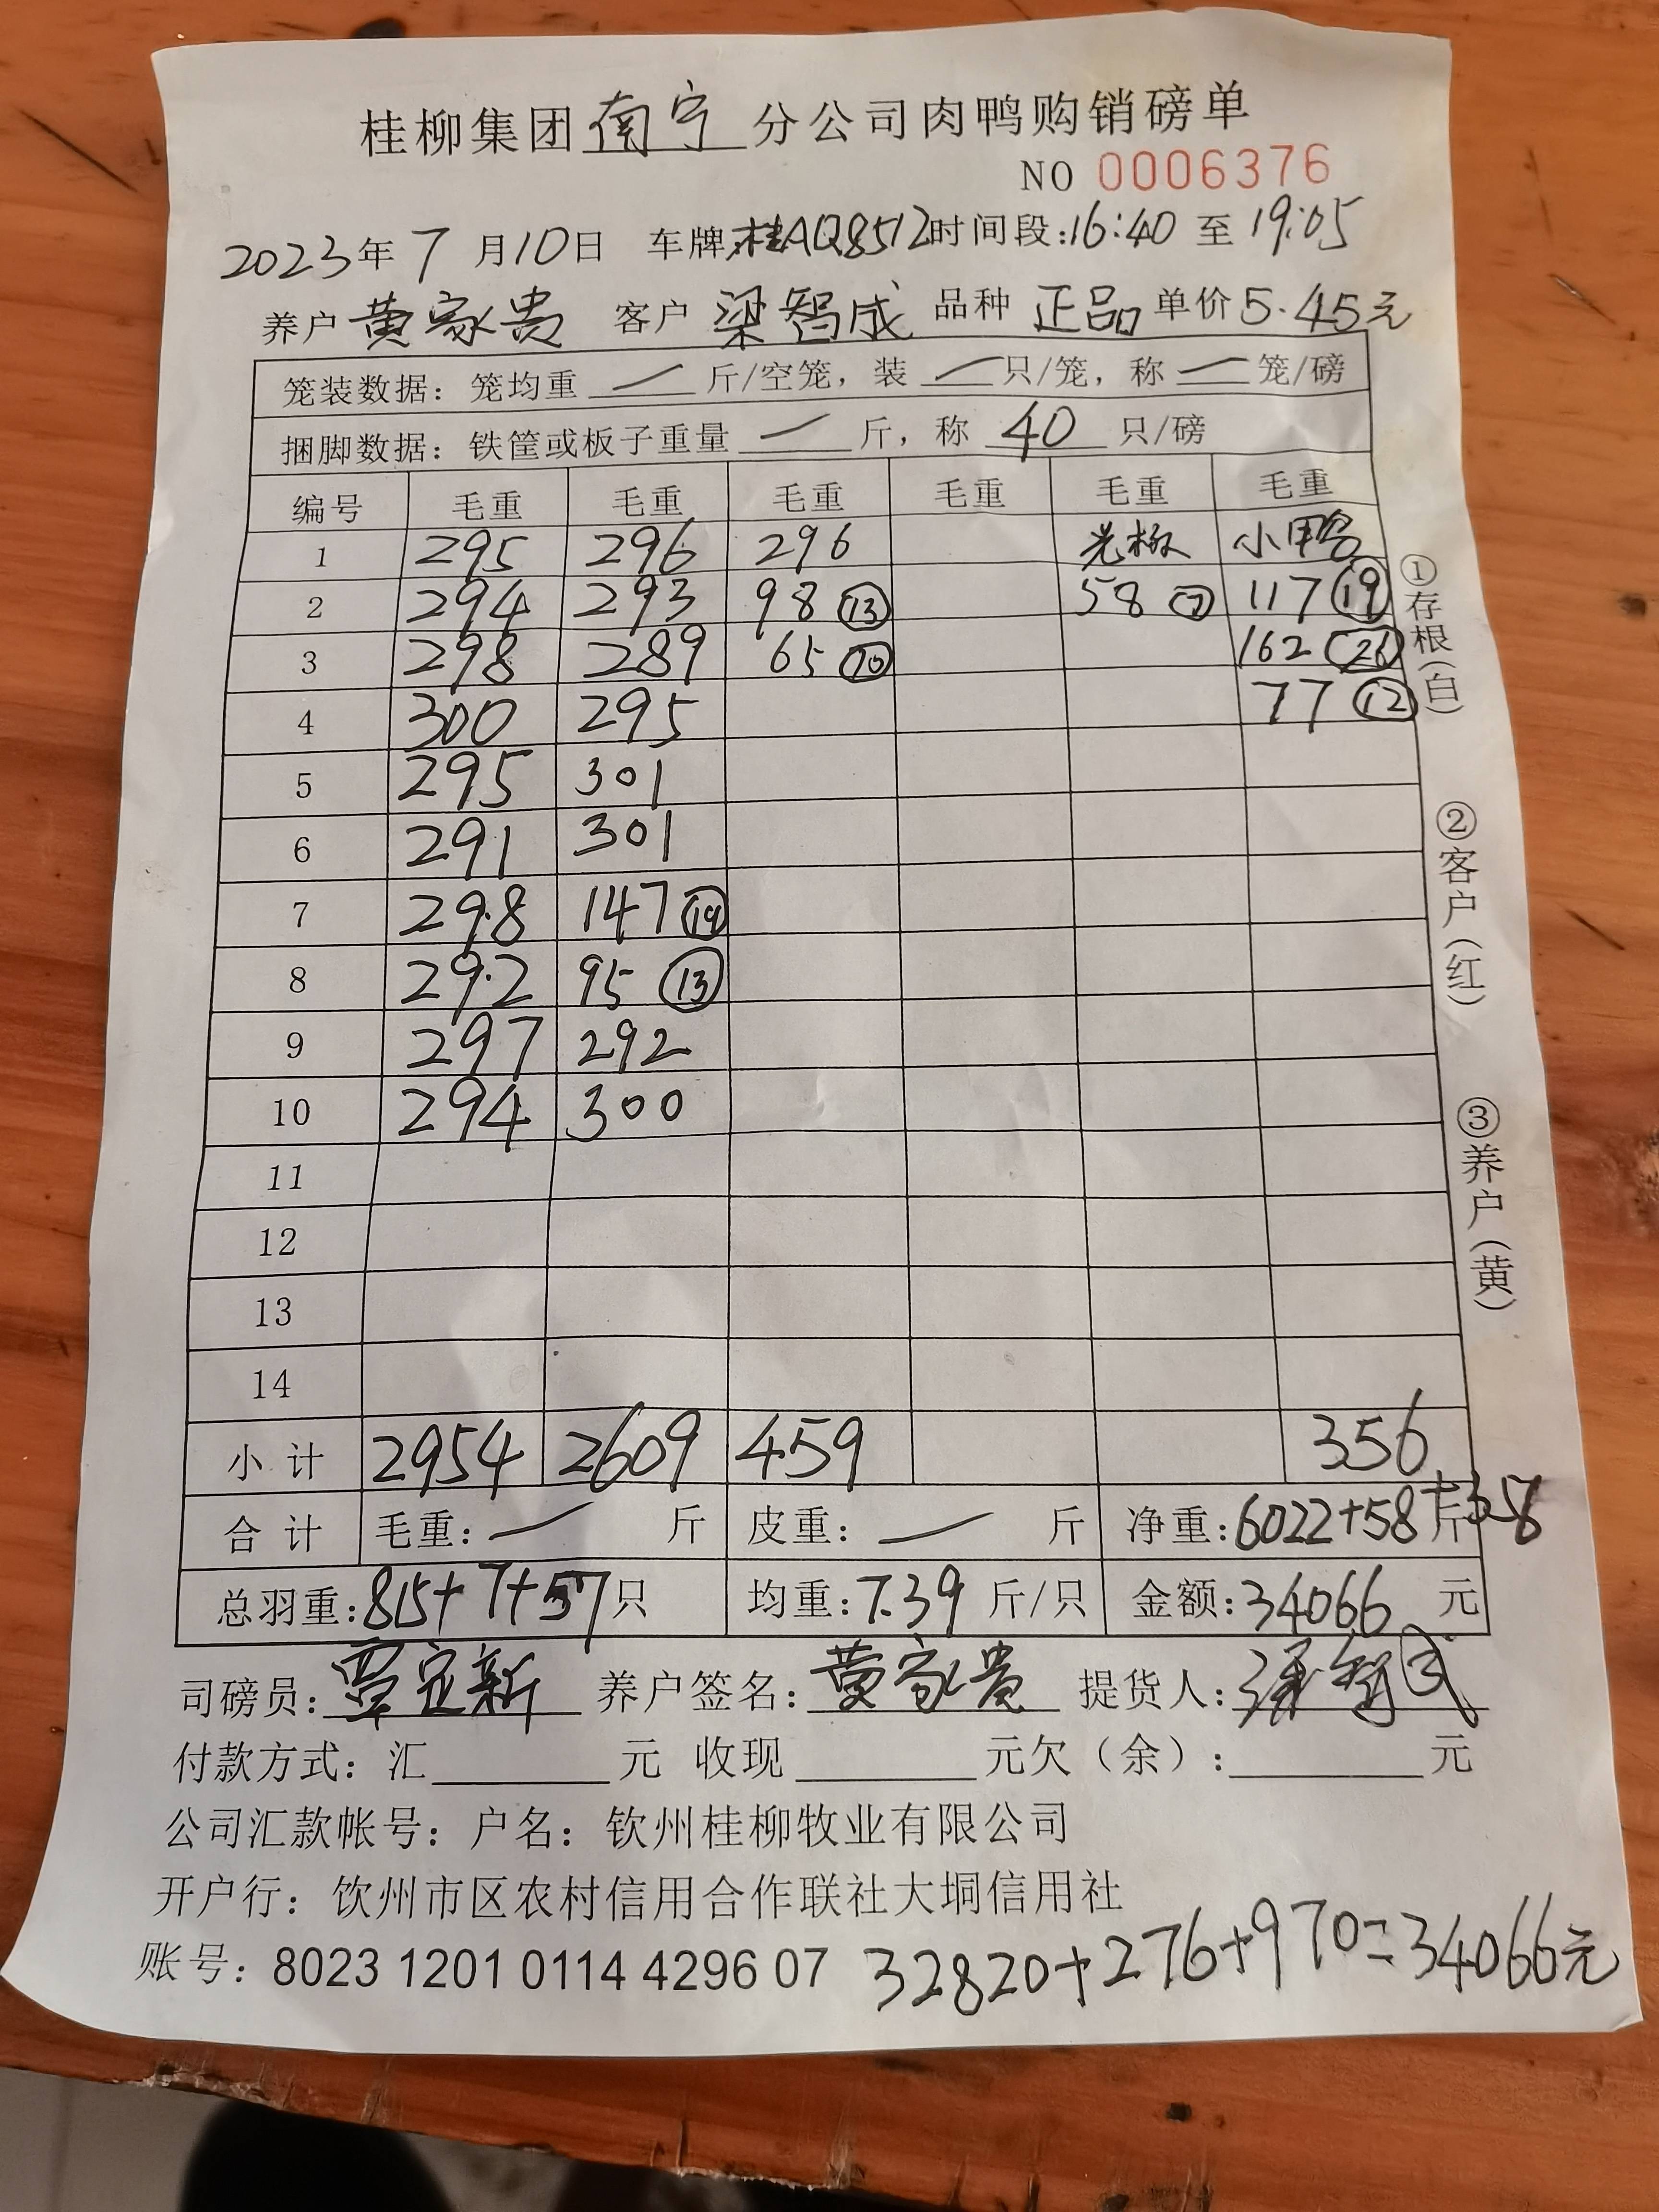 桂柳集团南宁分公司肉鸭购销磅单
NO 0006376
2023年7月10日 车牌:桂AQ8512时间段:16:40至19:05
养户 黄家贵 客户 梁智成 品种 正品 单价5.45元
笼装数据：笼均重 一 斤/空笼，装 一 只/笼，称 一 笼/磅
捆脚数据：铁筐或板子重量 一 斤，称 40 只/磅
编号 毛重 毛重 毛重 毛重 毛重 毛重
1 295 296 296 光板 小鸭
2 294 293 98 ⑬ 58 ⑦ 117 ⑲
3 298 289 65 ⑩ 162 ㉖
4 300 295 77 ⑫
5 295 301
6 291 301
7 29.8 147 ⑲
8 29.2 95 ⑬
9 297 292
10 294 300
11
12
13
14
小计 2954 2609 459 356
合计 毛重: 一 斤 皮重: 一 斤 净重:6022+58+356斤
总羽重:815+7+57只 均重:7.39斤/只 金额:34066元
司磅员:覃宜新 养户签名:黄家贵 提货人:
付款方式：汇 元 收现 元欠（余）: 元
公司汇款帐号：户名：钦州桂柳牧业有限公司
开户行：钦州市区农村信用合作联社大垌信用社
账号：8023 1201 0114 4296 07 32820+276+970=34066元
①存根（白）
②客户（红）
③养户（黄）